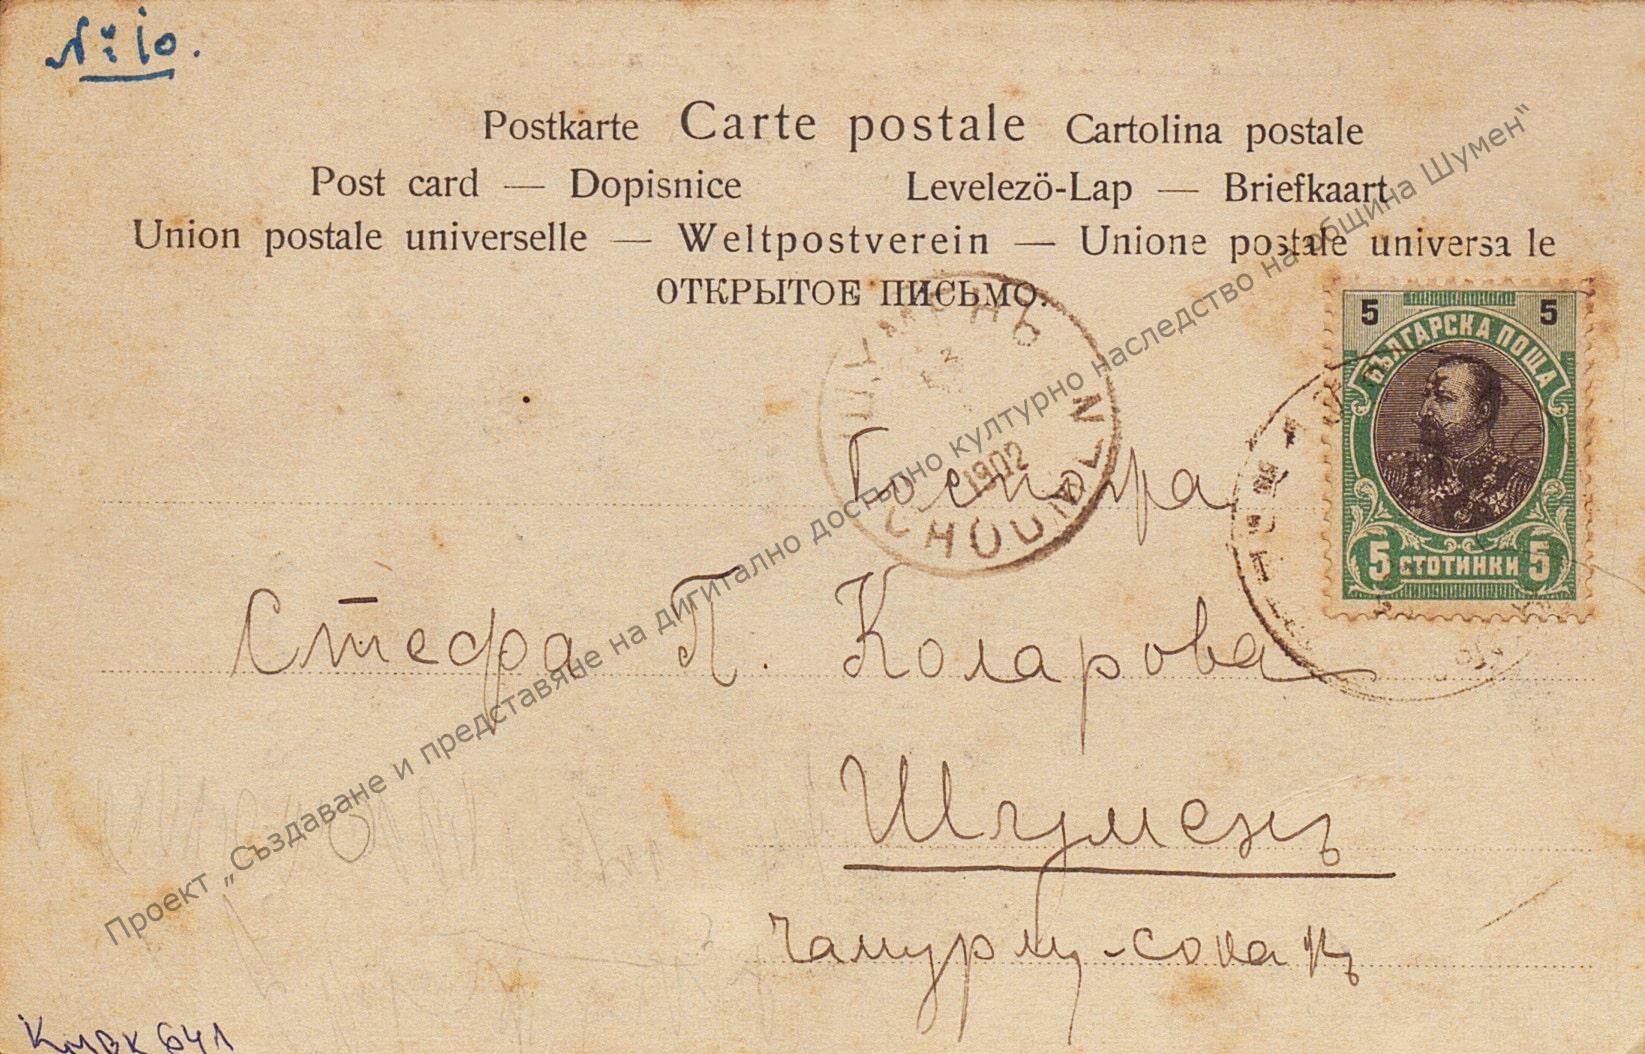 № 10.
Postkarte Carte postale Cartolina postale
Post card — Dopisnice Levelezö-Lap — Briefkaart
Union postale universelle — Weltpostverein — Unione postale universa le
ОТКРЫТОЕ ПИСЬМО.
5 5
БЪЛГАРСКА ПОЩА
5 СТОТИНКИ 5
ШУМЕНЪ
1902
CHOUMLN
Госпожа
Стефа П. Коларова
Шуменъ
Чамурлу-сокакъ
КМВК 641
Проект „Създаване и представяне на дигитално достъпно културно наследство на община Шумен“